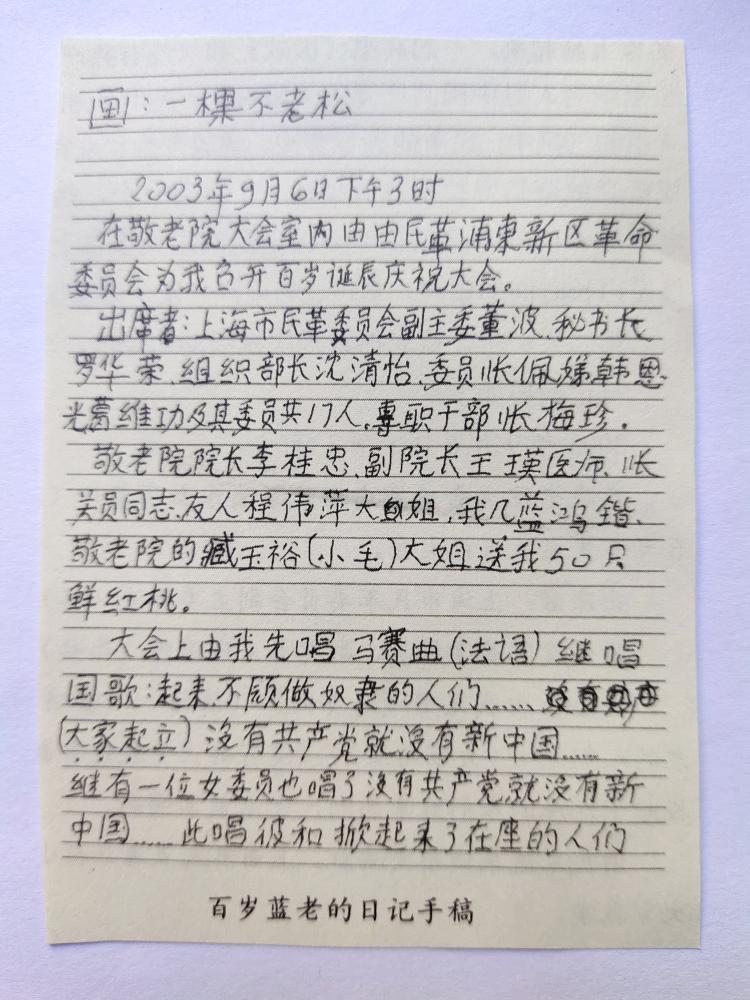 画：一棵不老松
2003年9月6日下午3时
在敬老院大会室内由由民革浦东新区革命
委员会为我召开百岁诞辰庆祝大会。
出席者：上海市民革委员会副主委董波、秘书长
罗华荣、组织部长沈清怡、委员张佩娣韩恩
光葛维功及其委员共17人，专职干部张梅珍。
敬老院院长李桂忠、副院长王瑛医师、张
关员同志、友人程伟萍大姐，我儿蓝鸿锴、
敬老院的臧玉裕(小毛)大姐送我50只
鲜红桃。
大会上由我先唱马赛曲(法语)继唱
国歌：起来、不愿做奴隶的人们……
(大家起立)没有共产党就没有新中国……
继有一位女委员也唱了没有共产党就没有新
中国……此唱彼和掀起来了在座的人们
百岁蓝老的日记手稿